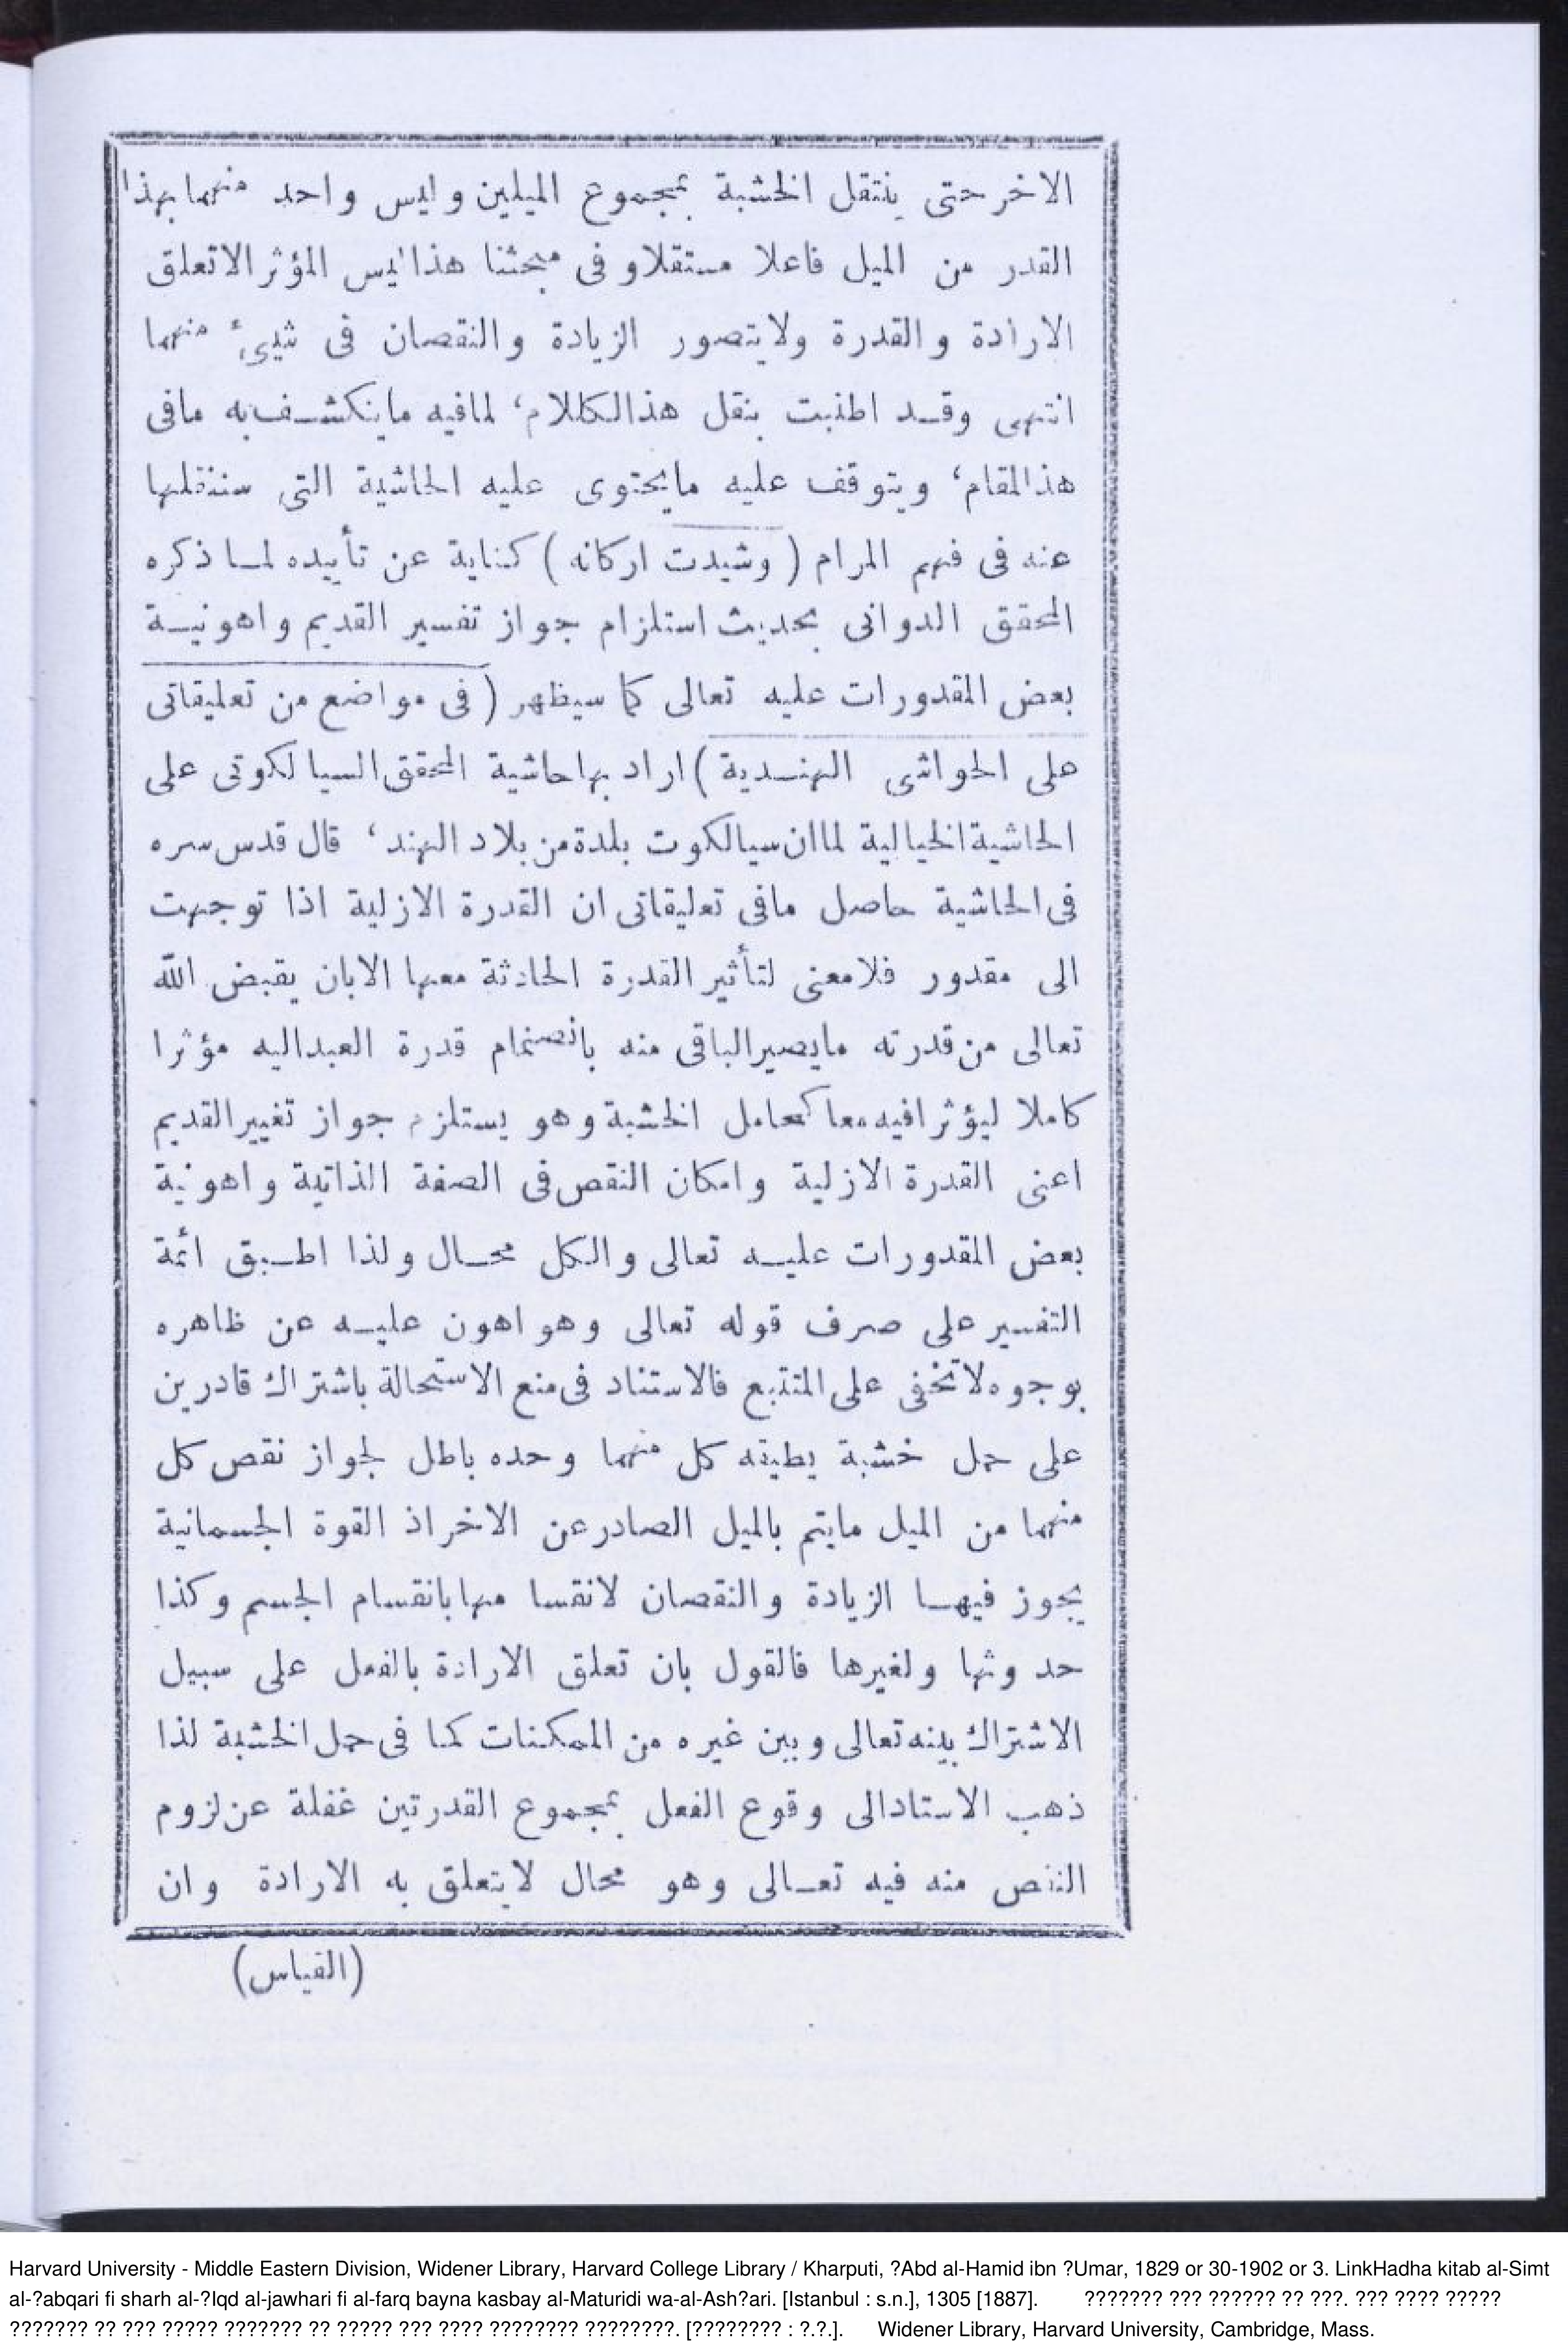 الاخر حتى ينتقل الخشبة بمجموع الميلين وليس واحد منهما بهذا
القدر من الميل فاعلا مستقلاو فى مبحثنا هذا ليس المؤثر الا تعلق
الارادة والقدرة ولا يتصور الزيادة والنقصان فى شيئ منهما
انتهى وقد اطنبت بنقل هذا الكلام، لما فيه ما ينكشف به ما فى
هذا المقام، ويتوقف عليه ما يحتوى عليه الحاشية التى سننقلها
عنه فى فهم المرام (وشيدت اركانه) كناية عن تأييده لما ذكره
المحقق الدوانى بحديث استلزام جواز تفسير القديم واهونية
بعض المقدورات عليه تعالى كما سيظهر (فى مواضع من تعليقاتى
على الحواشى الهندية) اراد بها حاشية المحقق السيالكوتى على
الحاشية الخيالية لما ان سيالكوت بلدة من بلاد الهند، قال قدس سره
فى الحاشية حاصل ما فى تعليقاتى ان القدرة الازلية اذا توجهت
الى مقدور فلا معنى لتأثير القدرة الحادثة معها الا بان يقبض الله
تعالى من قدرته ما يصير الباقى منه بانضمام قدرة العبد اليه مؤثرا
كاملا ليؤثرا فيه معا كحامل الخشبة وهو يستلزم جواز تغيير القديم
اعنى القدرة الازلية وامكان النقص فى الصفة الذاتية واهونية
بعض المقدورات عليه تعالى والكل محال ولذا اطبق ائمة
التفسير على صرف قوله تعالى وهو اهون عليه عن ظاهره
بوجوه لا تخفى على المتتبع فالاستناد فى منع الاستحالة باشتراك قادرين
على حمل خشبة يطيقه كل منهما وحده باطل لجواز نقص كل
منهما من الميل ما يتم بالميل الصادر عن الاخر اذ القوة الجسمانية
يجوز فيها الزيادة والنقصان لانقسامها بانقسام الجسم وكذا
حدوثها ولغيرها فالقول بان تعلق الارادة بالفعل على سبيل
الاشتراك بينه تعالى وبين غيره من الممكنات كما فى حمل الخشبة لذا
ذهب الاستاد الى وقوع الفعل بمجموع القدرتين غفلة عن لزوم
النقص منه فيه تعالى وهو محال لا يتعلق به الارادة وان
(القياس)
Harvard University - Middle Eastern Division, Widener Library, Harvard College Library / Kharputi, ?Abd al-Hamid ibn ?Umar, 1829 or 30-1902 or 3. LinkHadha kitab al-Simt
al-?abqari fi sharh al-?Iqd al-jawhari fi al-farq bayna kasbay al-Maturidi wa-al-Ash?ari. [Istanbul : s.n.], 1305 [1887]. ??????? ??? ?????? ?? ???. ??? ???? ?????
??????? ?? ??? ????? ??????? ?? ????? ??? ???? ???????? ????????. [???????? : ?.?.]. Widener Library, Harvard University, Cambridge, Mass.